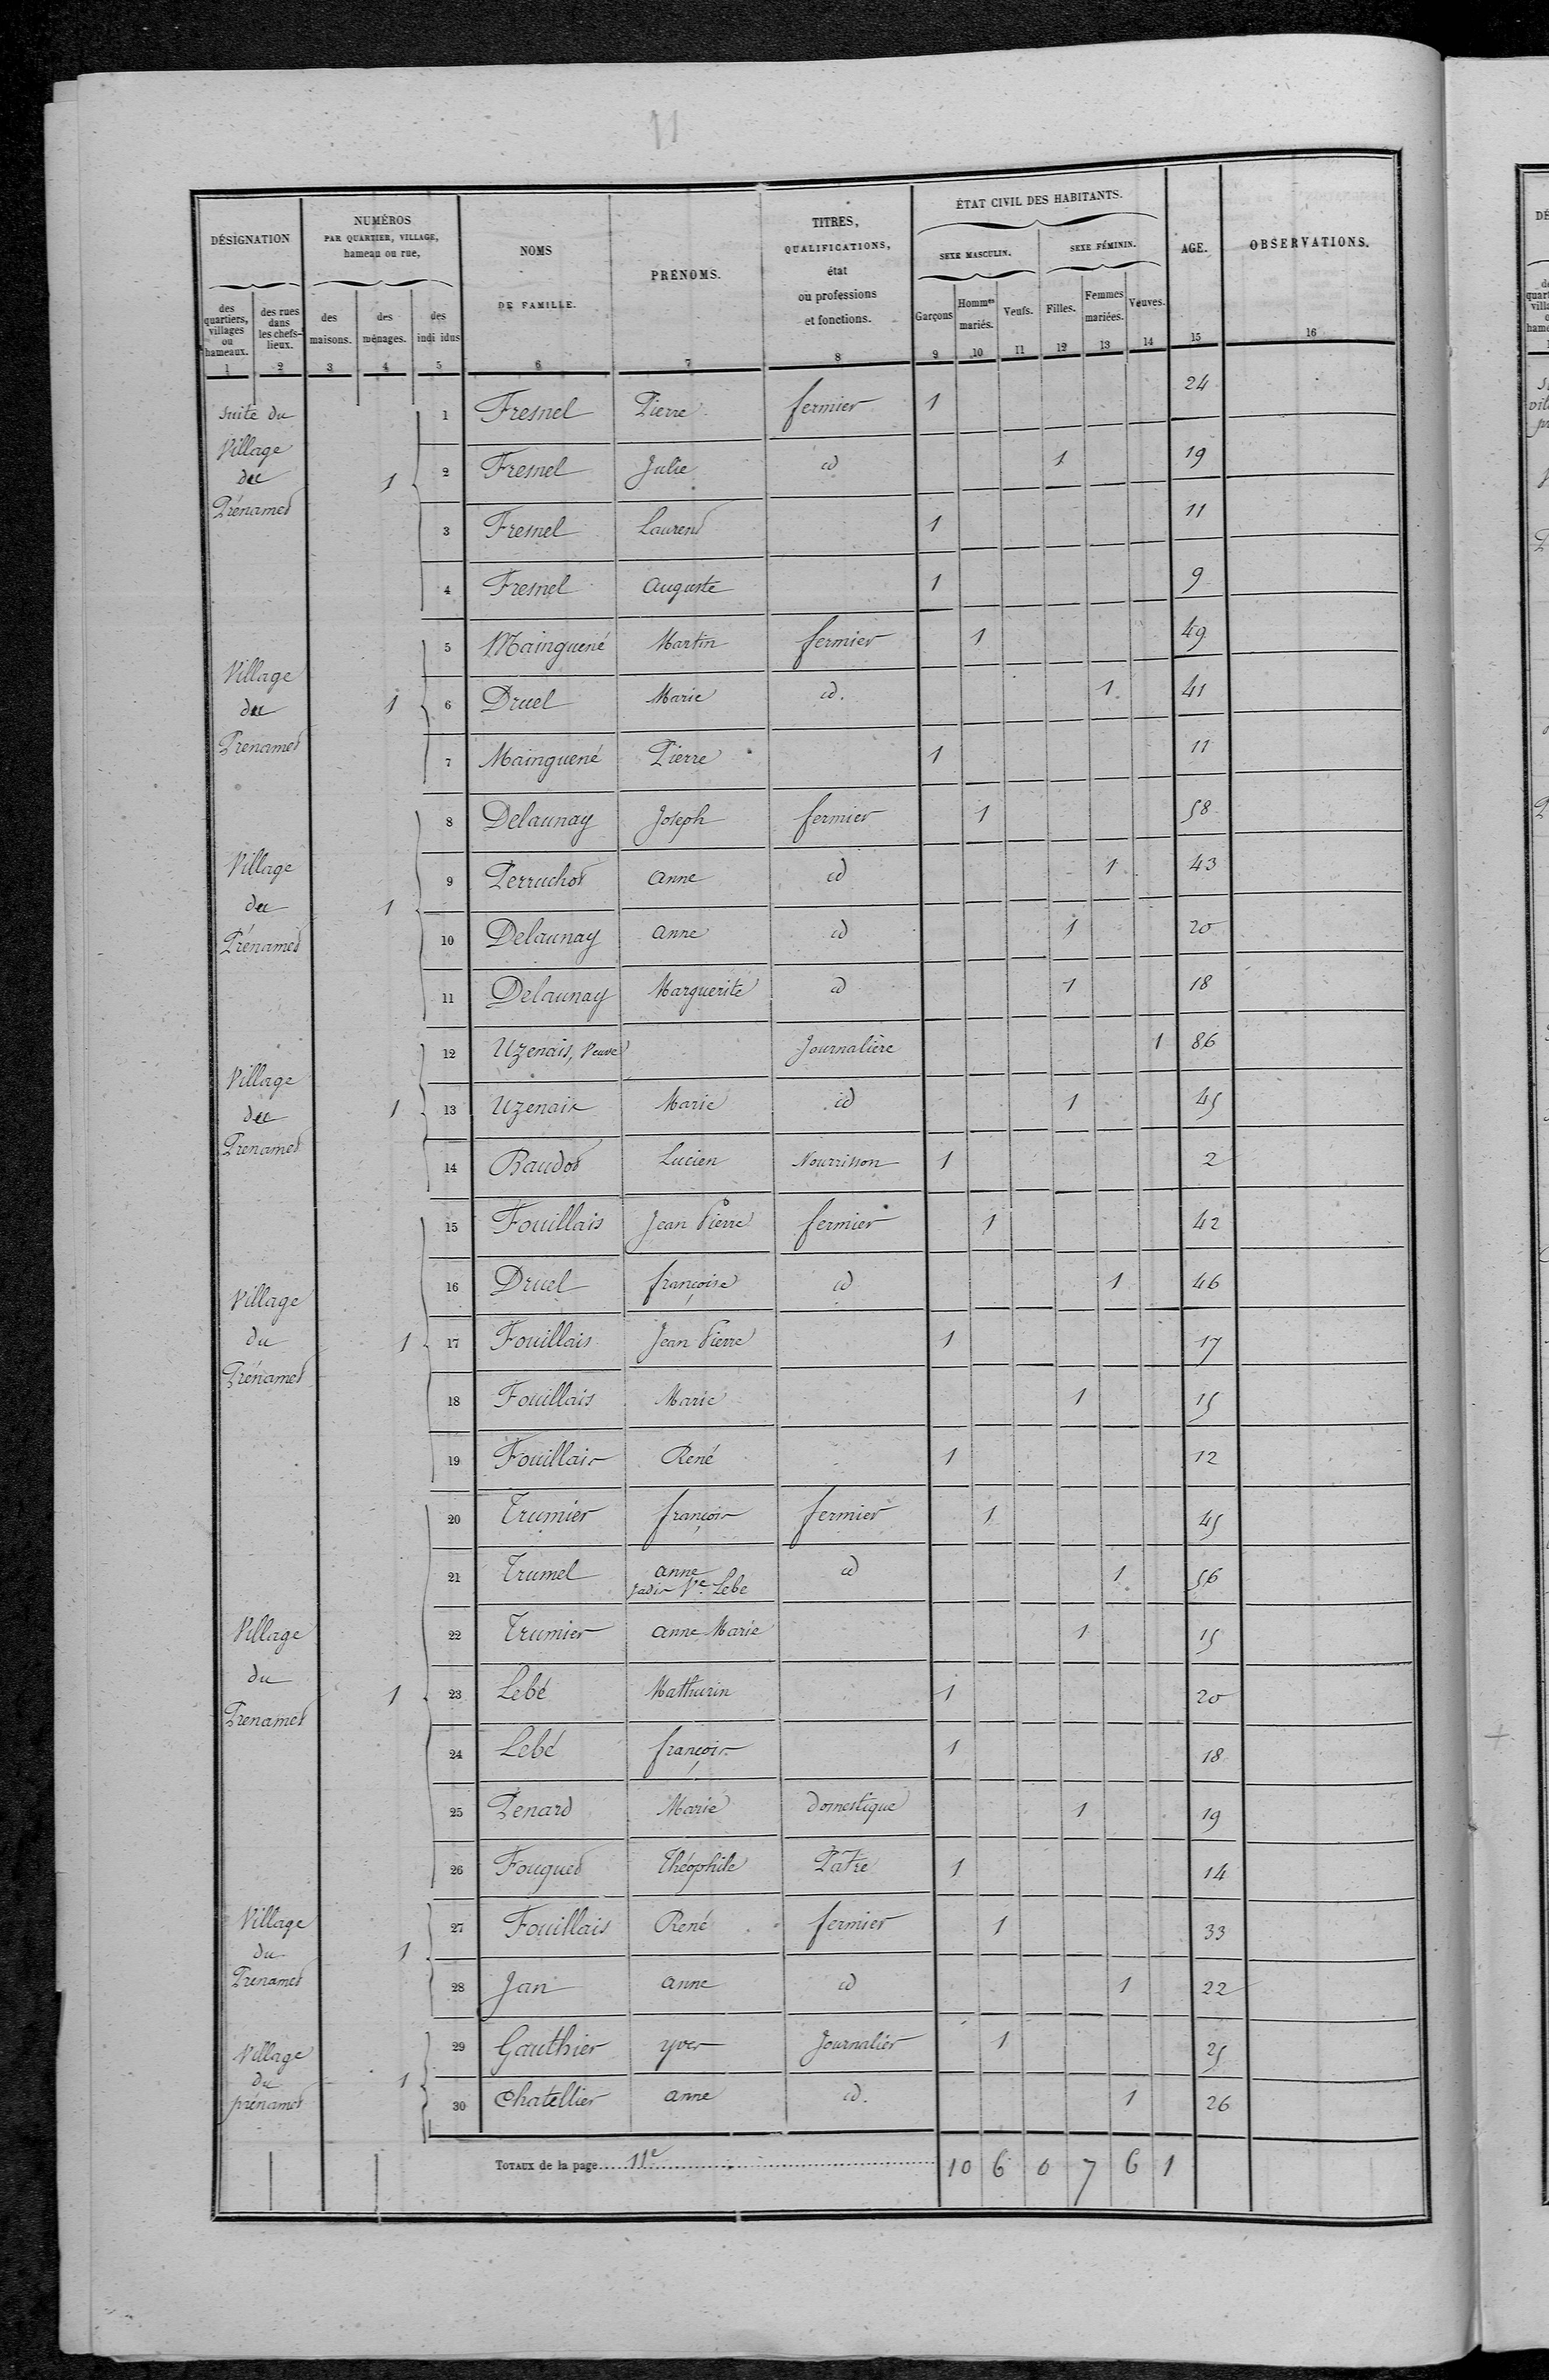 11
DÉSIGNATION
NUMÉROS
PAR QUARTIER, VILLAGE,
hameau ou rue,
NOMS
DE FAMILLE.
PRÉNOMS.
TITRES,
QUALIFICATIONS,
état
ou professions
et fonctions.
ÉTAT CIVIL DES HABITANTS.
SEXE MASCULIN.
SEXE FÉMININ.
AGE.
OBSERVATIONS.
des quartiers, villages ou hameaux.
des rues dans les chefs-lieux.
des maisons.
des ménages.
des indi idus
Garçons
Hommes mariés.
Veufs.
Filles.
Femmes mariées.
Veuves.
1 2 3 4 5 6 7 8 9 10 11 12 13 14 15 16
suite du Village du Prénamet
1
1 Fresnel Pierre fermier 1 24
2 Fresnel Julie id 1 19
3 Fresnel Laurent 1 11
4 Fresnel Auguste 1 9
Village du Prenamet
1
5 Mainguené Martin fermier 1 49
6 Druel Marie id. 1 41
7 Mainguené Pierre 1 11
Village du Prénamet
1
8 Delaunay Joseph fermier 1 58
9 Perruchot Anne id 1 43
10 Delaunay Anne id 1 20
11 Delaunay Marguerite id 1 18
Village du Prenamet
1
12 Uzenais, Veuve Journalière 1 86
13 Uzenais Marie id 1 45
14 Baudot Lucien Nourrisson 1 2
Village du Prénamet
1
15 Fouillais Jean Pierre fermier 1 42
16 Druel françoise id 1 46
17 Fouillais Jean Pierre 1 17
18 Fouillais Marie 1 15
19 Fouillais René 1 12
Village du Prenamet
1
20 Trumier françois fermier 1 45
21 Trumel anne id 1 56
jadis Ve Lebe
22 Trumier anne Marie 1 15
23 Lebé Mathurin 1 20
24 Lebé françois 1 18
25 Penard Marie domestique 1 19
26 Fouguet Théophile Patre 1 14
Village du Prenamet
1
27 Fouillais René fermier 1 33
28 Jan anne id 1 22
Village du prénamet
1
29 Gauthier yves Journalier 1 25
30 Chatellier anne id. 1 26
TOTAUX de la page 11e 10 6 0 7 6 1